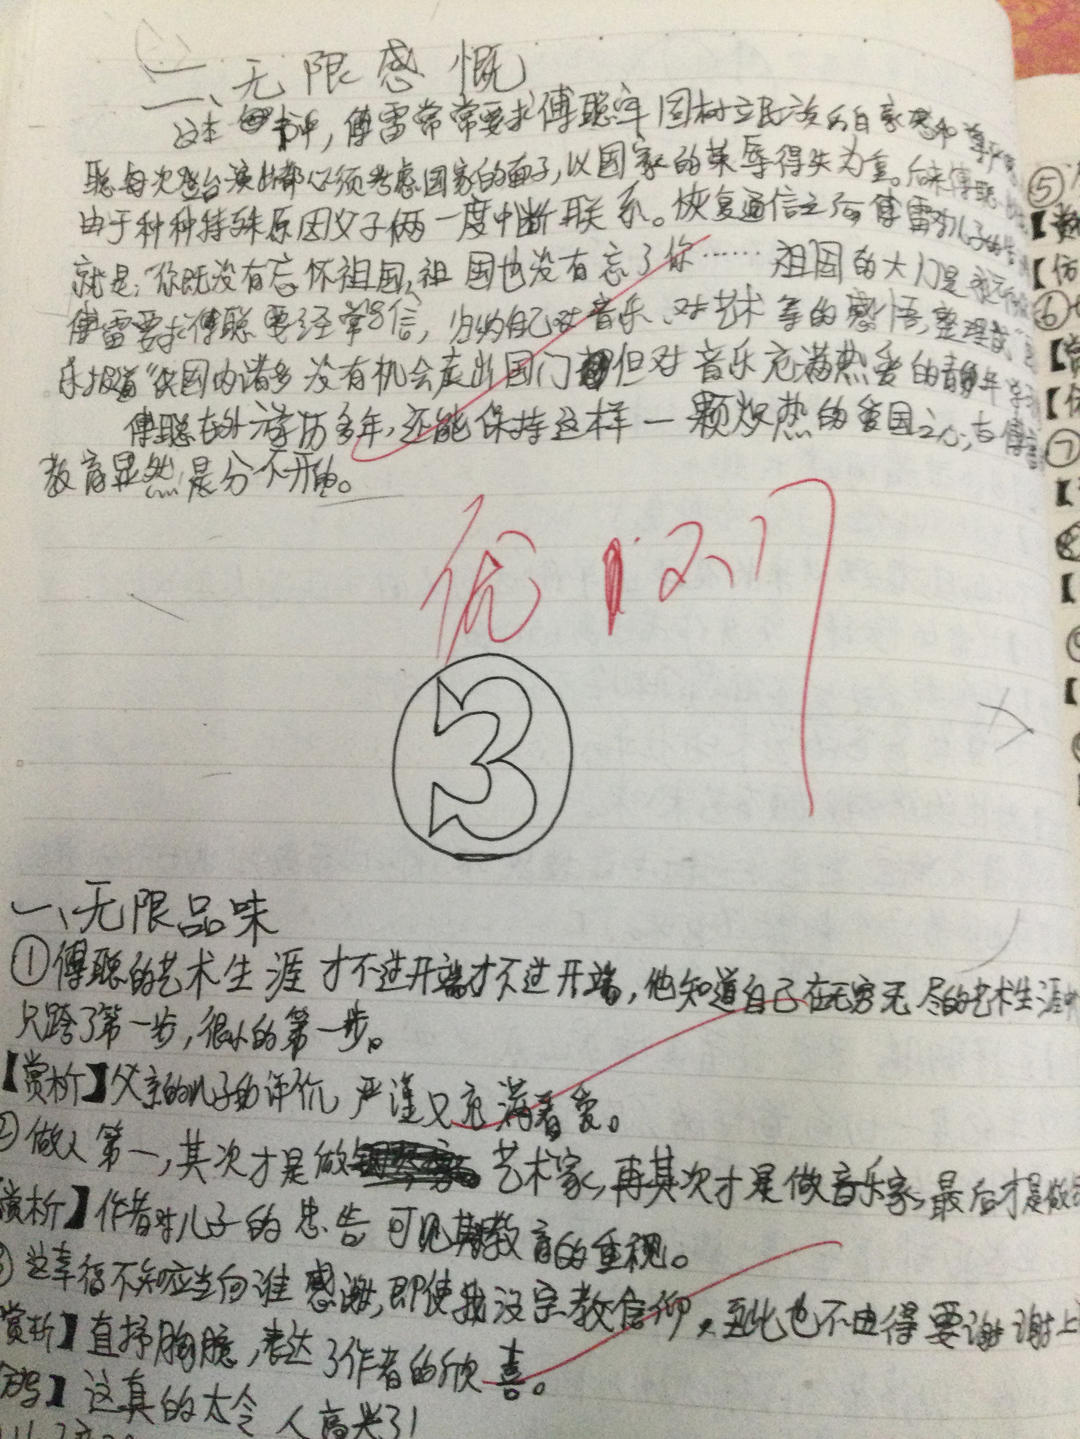 二、无限感慨
这本书中，傅雷常常要求傅聪牢固树立民族的自家
聪每次登台演出都必须考虑国家的面子，以国家的荣辱得失为重。后来傅聪
由于种种特殊原因父子俩一度中断联系。恢复通信之后傅雷对儿子的
就是：“你既没有忘怀祖国，祖国也没有忘了你……祖国的大门是永远
傅雷要求傅聪要经常写信，归纳自己对音乐、对艺术等的感悟，整理成
乐报道”供国内诸多没有机会走出国门但对音乐充满热爱的青年学
傅聪在外游历多年，还能保持这样一颗炽热的爱国之心，与傅雷
教育显然是分不开的。
优
③
一、无限品味
①傅聪的艺术生涯才不过开端才不过开端，他知道自己在无穷无尽的艺术生涯中
只跨了第一步，很小的第一步。
【赏析】父亲的儿子的评价，严谨又充满着爱。
②做人第一，其次才是做艺术家，再其次才是做音乐家，最后才是做
赏析】作者对儿子的忠告可见其教育的重视。
这幸福不知应当向谁感谢，即使我没宗教信仰，至此也不由得要谢谢上
赏析】直抒胸臆，表达了作者的欣喜。
仿写】这真的太令人高兴了！
⑤
【
【仿
⑥
【赏
【仿
⑦
【
【
【